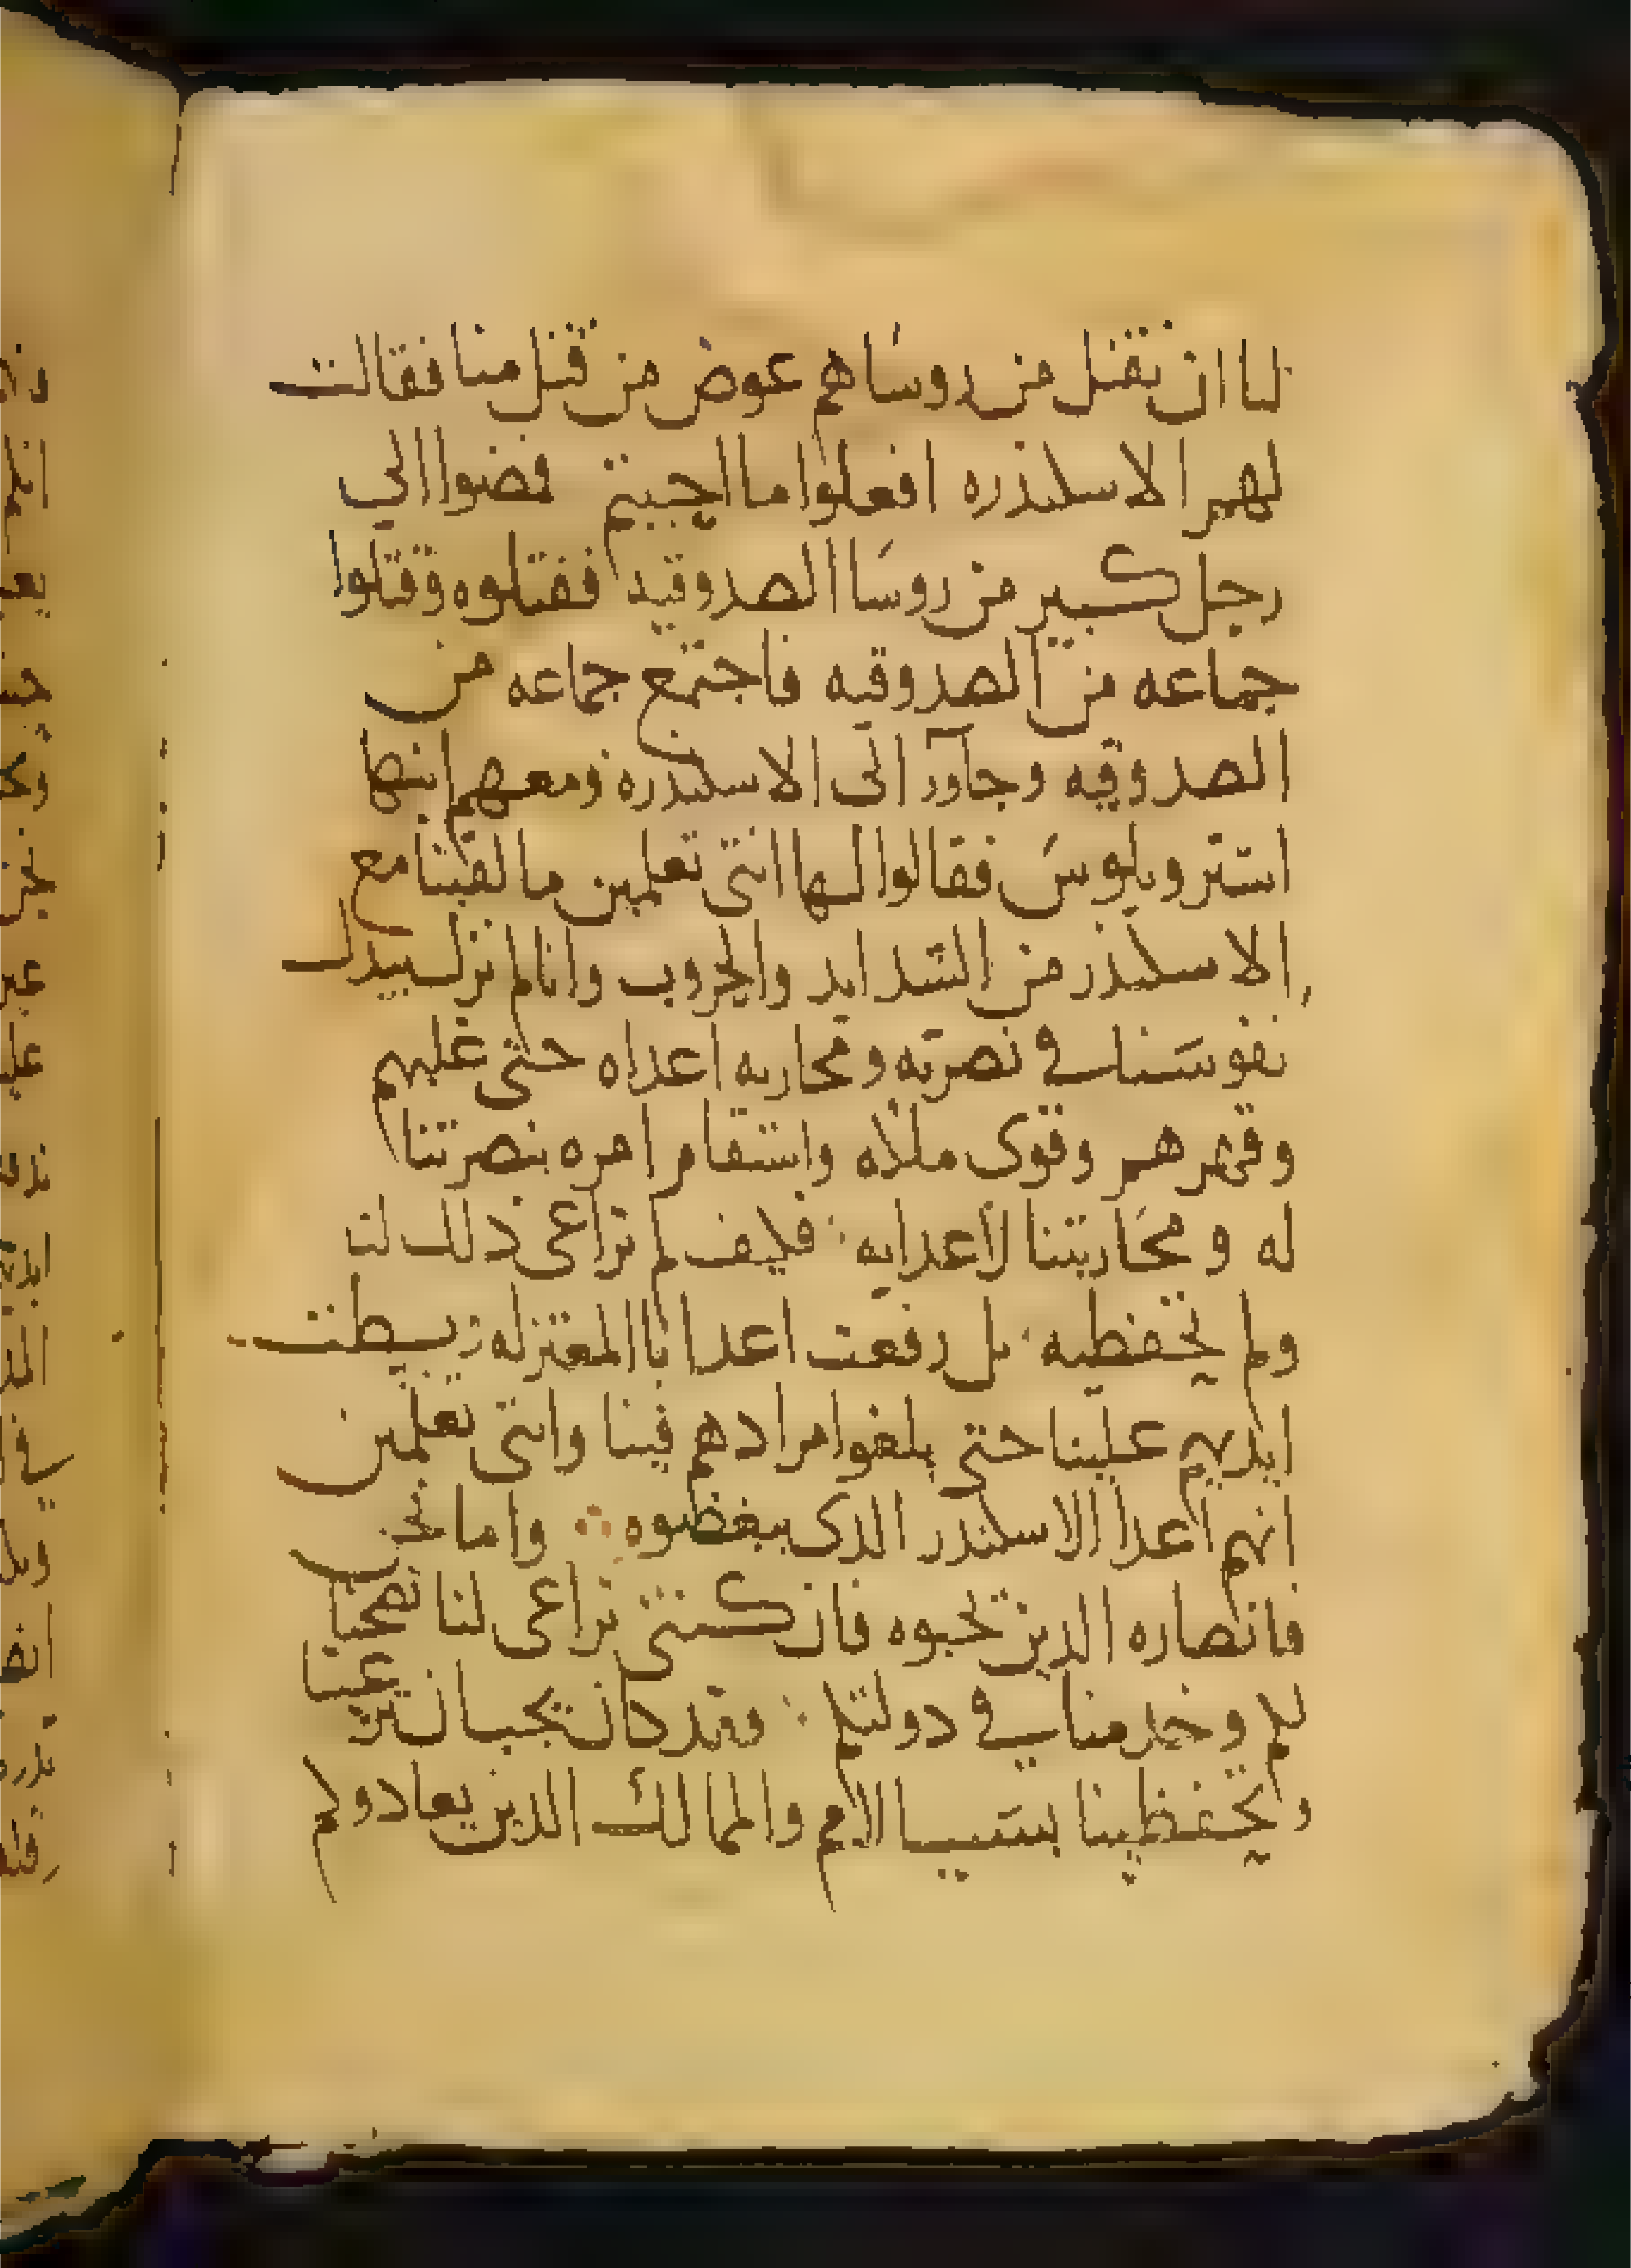 لنا ان نقتل من روساهم عوض من قتل منا فقالت
لهم الاسكندره افعلوا ما احببتم فمضوا الي
رجل كبير من روسا الصدوقيه فقتلوه وقتلوا
جماعه من الصدوقيه فاجتمع جماعه من
الصدوقيه وجاوا الى الاسكندره ومعهم ابنها
استروبلوس فقالوا لها انتى تعلمين ما لقينا مع
الاسكندر من الشدايد والحروب وانا لم نزل نبيدل
نفوسنا في نصرته ومحاربه اعداه حتى غلبهم
وقهرهم وقوى ملكه واستقام امره بنصرتنا
له ومحاربتنا لاعدايه فكيف لم تراعى ذلك لنا
ولم تحفظيه بل رفعت اعدانا المعتزله وبسطت
ايديهم علينا حتى بلغوا مرادهم فينا وانتى تعلمين
انهم اعدا الاسكندر الذى يبغضوه واما نحن
فانصاره الذين نحبوه فان كنتى تراعى لنا نصحنا
لكم وخدمتنا في دولتكم وقد كان يجب ان ترعينا
وتحفظينا بسبب الامم والممالك الذين يعادوكم